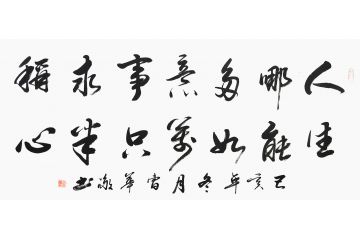 人生
哪能
多如
意萬
事只
求半
稱心
己亥年冬月華书